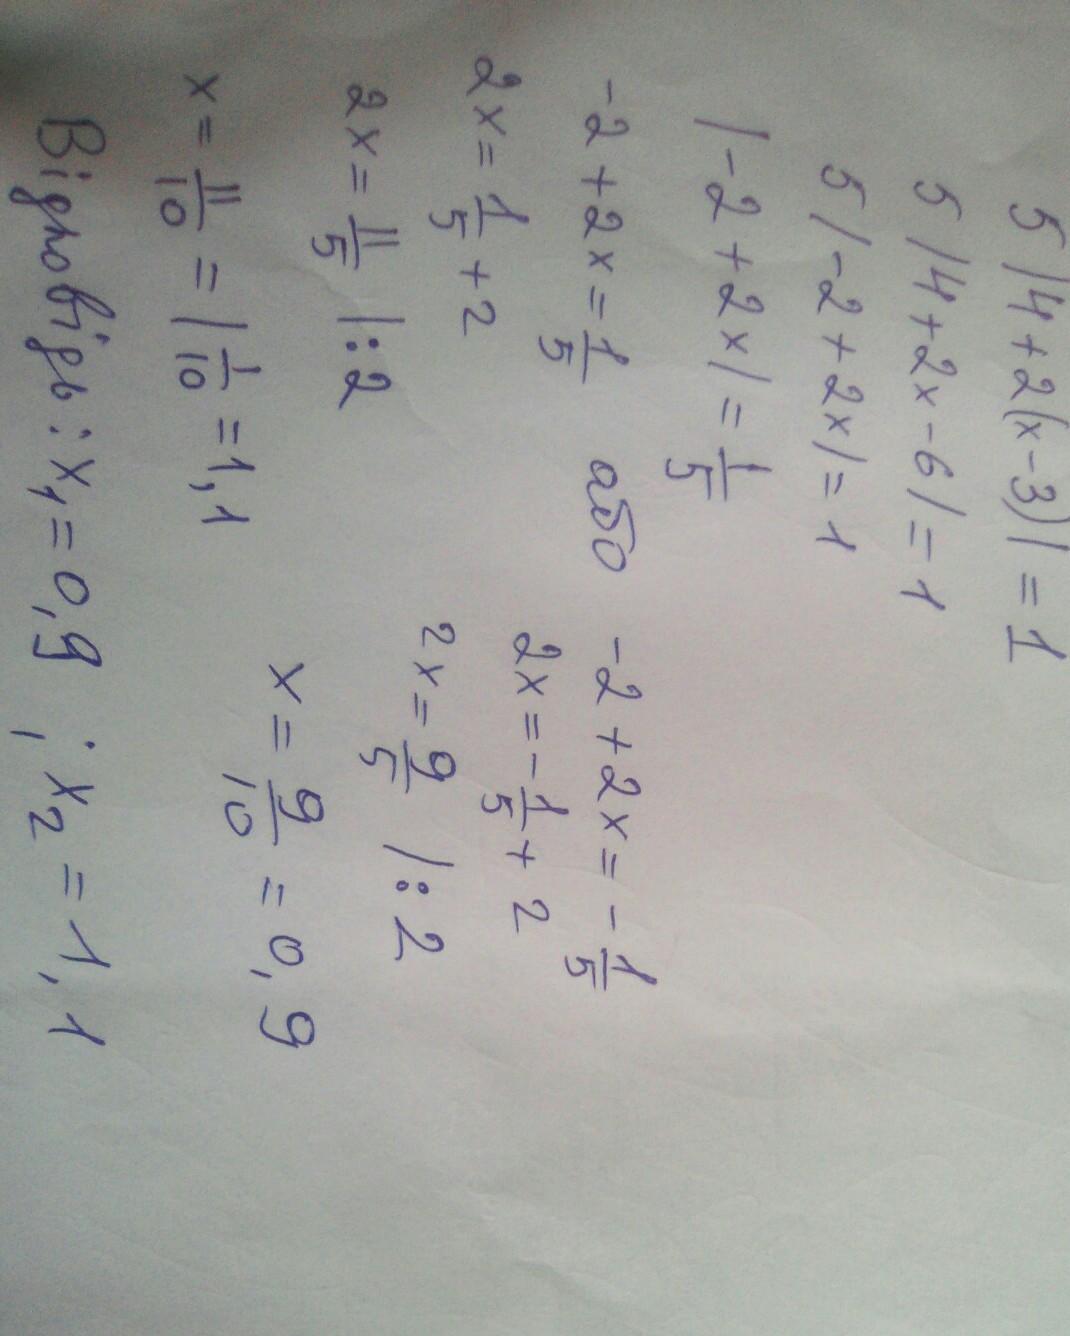 5 |4+2(x-3)| = 1
5 |4+2x-6| = 1
5 |-2+2x| = 1
|-2+2x| = 1/5
-2+2x = 1/5 або -2+2x = -1/5
2x = 1/5 + 2 2x = -1/5 + 2
2x = 11/5 |:2 2x = 9/5 |:2
x = 11/10 = 1 1/10 = 1,1 x = 9/10 = 0,9
Відповідь: x₁ = 0,9 ; x₂ = 1,1